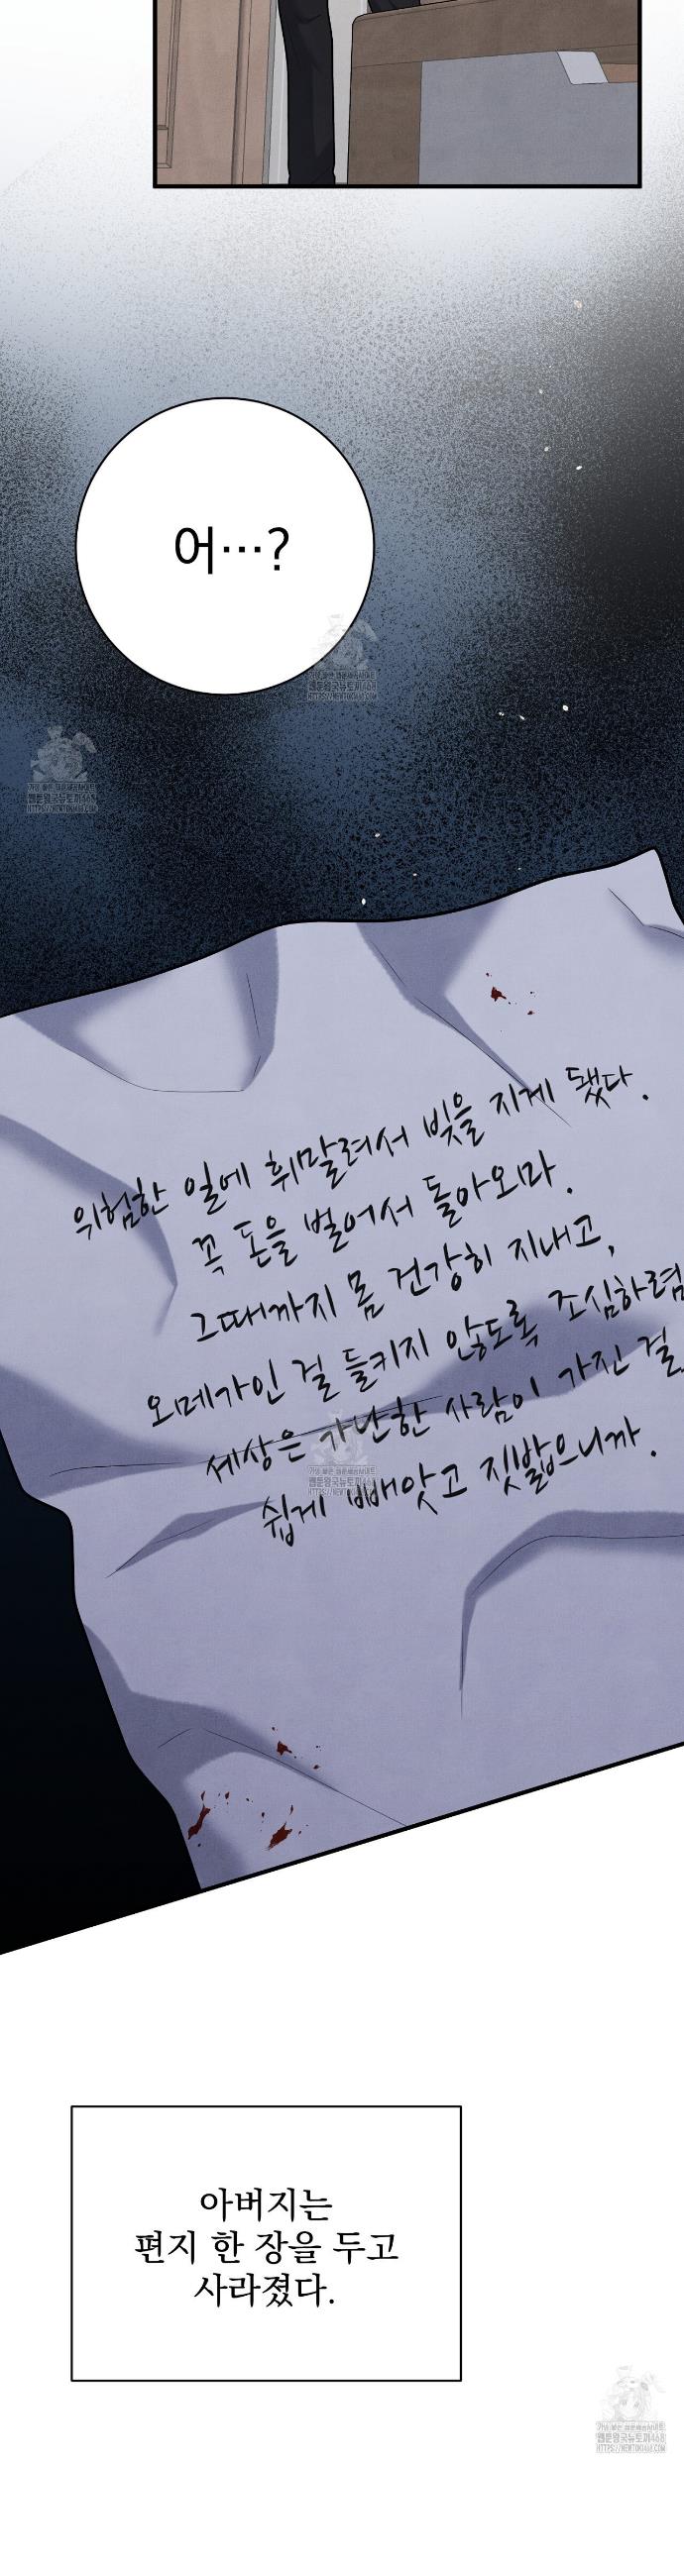 어…?
위험한 일에 휘말려서 빚을 지게 됐다.
꼭 돈을 벌어서 돌아오마.
그때까지 몸 건강히 지내고,
오메가인 걸 들키지 않도록 조심하렴
세상은 가난한 사람이 가진 걸
쉽게 빼앗고 짓밟으니까.
아버지는
편지 한 장을 두고
사라졌다.
웹툰왕국뉴토끼468
HTTPS://NEWTOKI468.COM